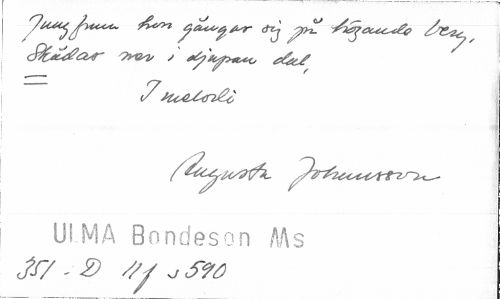 Jungfrun hon gångar sig på högande berg,
Skådar ner i djupan dal,
1 melodi
Augusta Johansson
ULMA Bondeson Ms
351:D 11f s 590